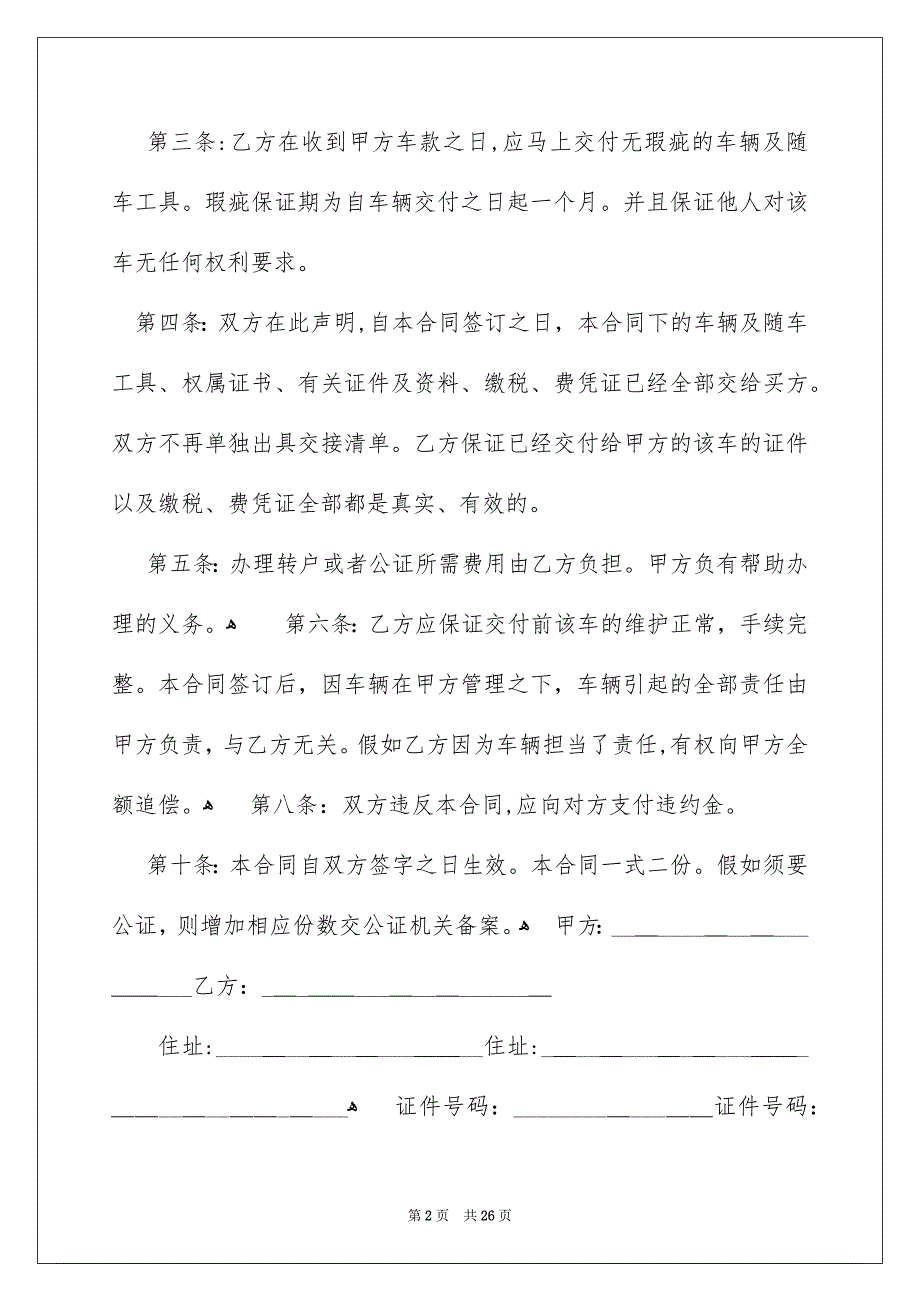 第三条:乙方在收到甲方车款之日,应马上交付无瑕疵的车辆及随
车工具。瑕疵保证期为自车辆交付之日起一个月。并且保证他人对该
车无任何权利要求。
第四条:双方在此声明,自本合同签订之日，本合同下的车辆及随车
工具、权属证书、有关证件及资料、缴税、费凭证已经全部交给买方。
双方不再单独出具交接清单。乙方保证已经交付给甲方的该车的证件
以及缴税、费凭证全部都是真实、有效的。
第五条：办理转户或者公证所需费用由乙方负担。甲方负有帮助办
理的义务。ﻫ 第六条：乙方应保证交付前该车的维护正常，手续完
整。本合同签订后，因车辆在甲方管理之下，车辆引起的全部责任由
甲方负责，与乙方无关。假如乙方因为车辆担当了责任,有权向甲方全
额追偿。ﻫ 第八条：双方违反本合同,应向对方支付违约金。
第十条：本合同自双方签字之日生效。本合同一式二份。假如须要
公证，则增加相应份数交公证机关备案。ﻫ 甲方：_________________
_______乙方：_________________________
住址:_______________________住址:_______________________
____________________ﻫ 证件号码：_________________证件号码：
第2页 共26页